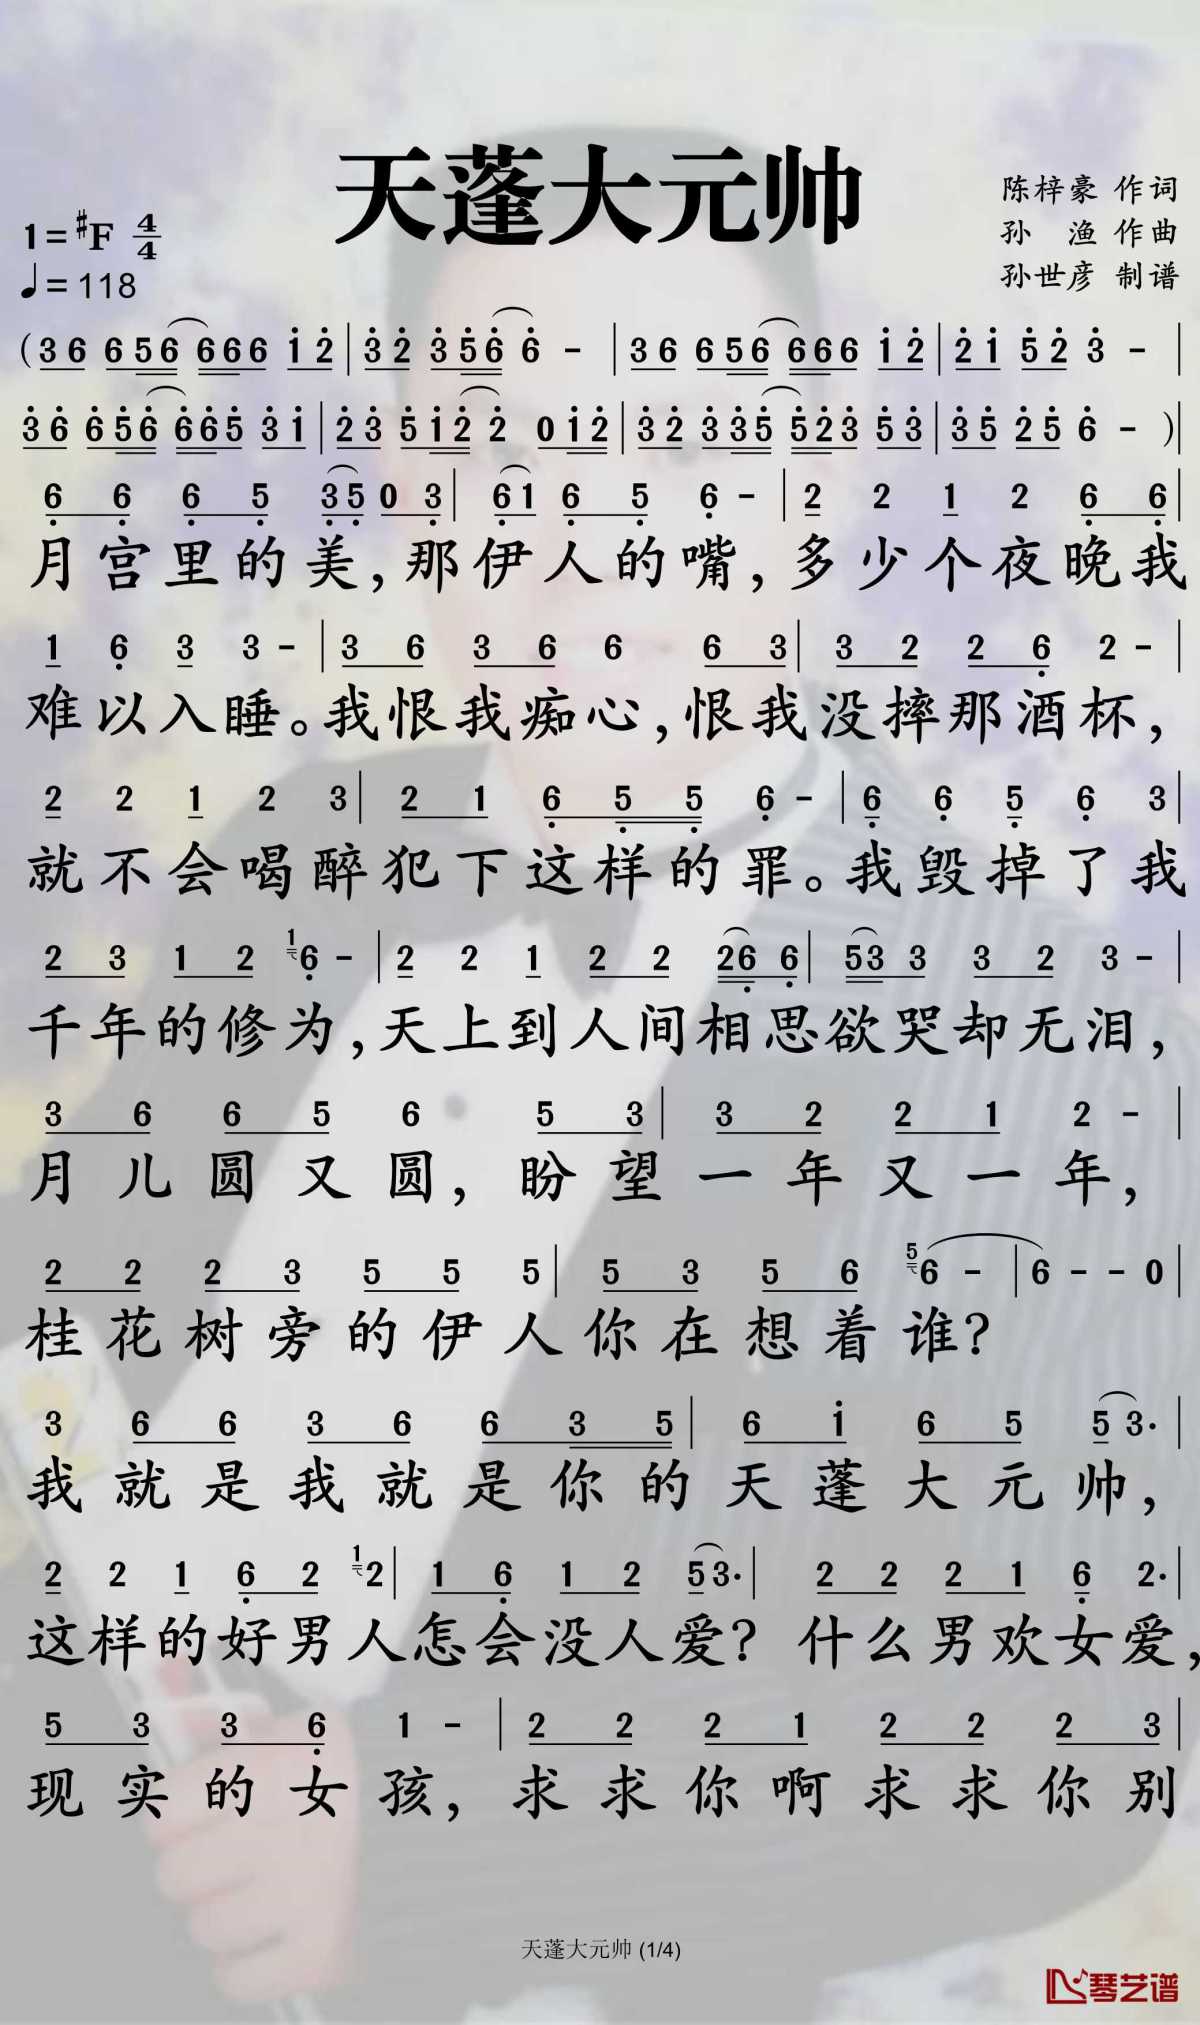 天蓬大元帅
陈梓豪 作词
孙 渔 作曲
孙世彦 制谱
1=#F 4/4
♩=118
(3 6 6 5 6 6 6 6 1̇ 2̇ | 3̇ 2̇ 3̇ 5̇ 6̇ 6̇ - | 3 6 6 5 6 6 6 6 1̇ 2̇ | 2̇ 1̇ 5̇ 2̇ 3̇ - |
3̇ 6̇ 6̇ 5̇ 6̇ 6̇ 6̇ 5̇ 3̇ 1̇ | 2̇ 3̇ 5̇ 1̇ 2̇ 2̇ 0 1̇ 2̇ | 3̇ 2̇ 3̇ 3̇ 5̇ 5̇ 2̇ 3̇ 5̇ 3̇ | 3̇ 5̇ 2̇ 5̇ 6̇ - )|
6̣ 6̣ 6̣ 5̣ 3̣ 5̣ 0 3̣ | 6̣ 1 6̣ 5̣ 6̣ - | 2 2 1 2 6̣ 6̣ |
月宫里的美,那伊人的嘴,多少个夜晚我
1 6̣ 3 3 - | 3 6 3 6 6 6 3 | 3 2 2 6̣ 2 - |
难以入睡。我恨我痴心,恨我没摔那酒杯,
2 2 1 2 3 | 2 1 6̣ 5̣ 5̣ 6̣ - | 6̣ 6̣ 5̣ 6̣ 3 |
就不会喝醉犯下这样的罪。我毁掉了我
2 3 1 2 1 6̣ - | 2 2 1 2 2 2 6̣ 6̣ | 5 3 3 3 2 3 - |
千年的修为,天上到人间相思欲哭却无泪,
3 6 6 5 6 5 3 | 3 2 2 1 2 - |
月儿圆又圆,盼望一年又一年,
2 2 2 3 5 5 5 | 5 3 5 6 5 6 - | 6 - - 0 |
桂花树旁的伊人你在想着谁?
3 6 6 3 6 6 3 5 | 6 1̇ 6 5 5 3· |
我就是我就是你的天蓬大元帅,
2 2 1 6̣ 2 1 2 | 1 6̣ 1 2 5 3· | 2 2 2 1 6̣ 2·
这样的好男人怎会没人爱? 什么男欢女爱,
5 3 3 6̣ 1 - | 2 2 2 1 2 2 2 3 |
现实的女孩,求求你啊求求你别
天蓬大元帅 (1/4)
琴艺谱